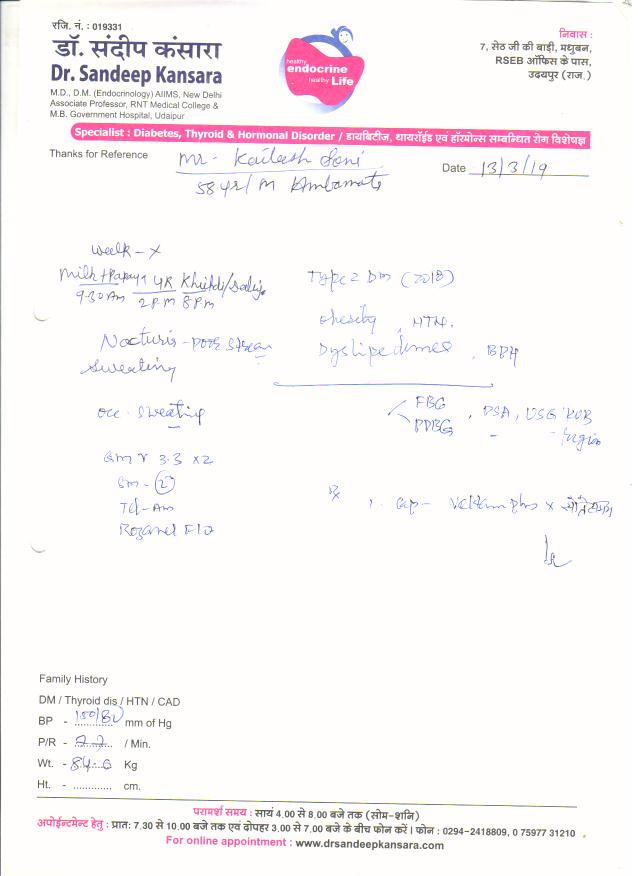 रजि. नं. : 019331
डॉ. संदीप कंसारा
Dr. Sandeep Kansara
M.D., D.M. (Endocrinology) AIIMS, New Delhi
Associate Professor, RNT Medical College &
M.B. Government Hospital, Udaipur
healthy
endocrine
healthy Life
निवास :
7, सेठ जी की बाड़ी, मधुबन,
RSEB ऑफिस के पास,
उदयपुर (राज.)
Specialist : Diabetes, Thyroid & Hormonal Disorder / डायबिटीज, थायरॉईड एवं हॉरमोन्स सम्बन्धित रोग विशेषज्ञ
Thanks for Reference
Mr. Kailash Soni
58 yr/M Ambamata
Date 13/3/19
walk - x
Milk + Papaya 4R Khichdi/
9.30 AM 2 PM 8 PM
Nocturia - poor stream
sweating
occ. sweating
3.3 x 2
Type 2 DM (2018)
obesity, HTN,
Dyslipidemia, BPH
FBG
PPBG, PSA, USG KUB
Rx
1. Cap-
Family History
DM / Thyroid dis / HTN / CAD
BP - 150/80 mm of Hg
P/R - 77 / Min.
Wt. - 84.6 Kg
Ht. - ............. cm.
परामर्श समय : सायं 4.00 से 8.00 बजे तक (सोम-शनि)
अपोईन्टमेन्ट हेतु : प्रातः 7.30 से 10.00 बजे तक एवं दोपहर 3.00 से 7.00 बजे के बीच फोन करें । फोन : 0294-2418809, 0 75977 31210
For online appointment : www.drsandeepkansara.com